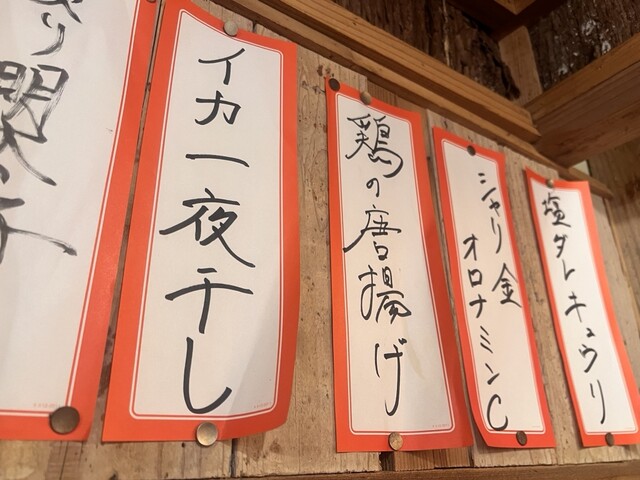 イカ一夜干し
鶏の唐揚げ
シャリ金
オロナミンC
塩ダレキュウリ